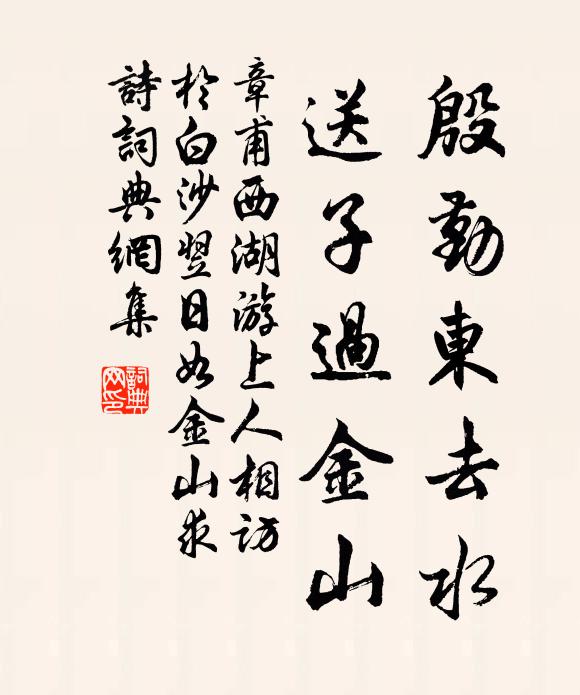 殷勤東去水
送子過金山
章甫西湖游上人相訪
於白沙翌日如金山求
詩詞典網集
詞典网印